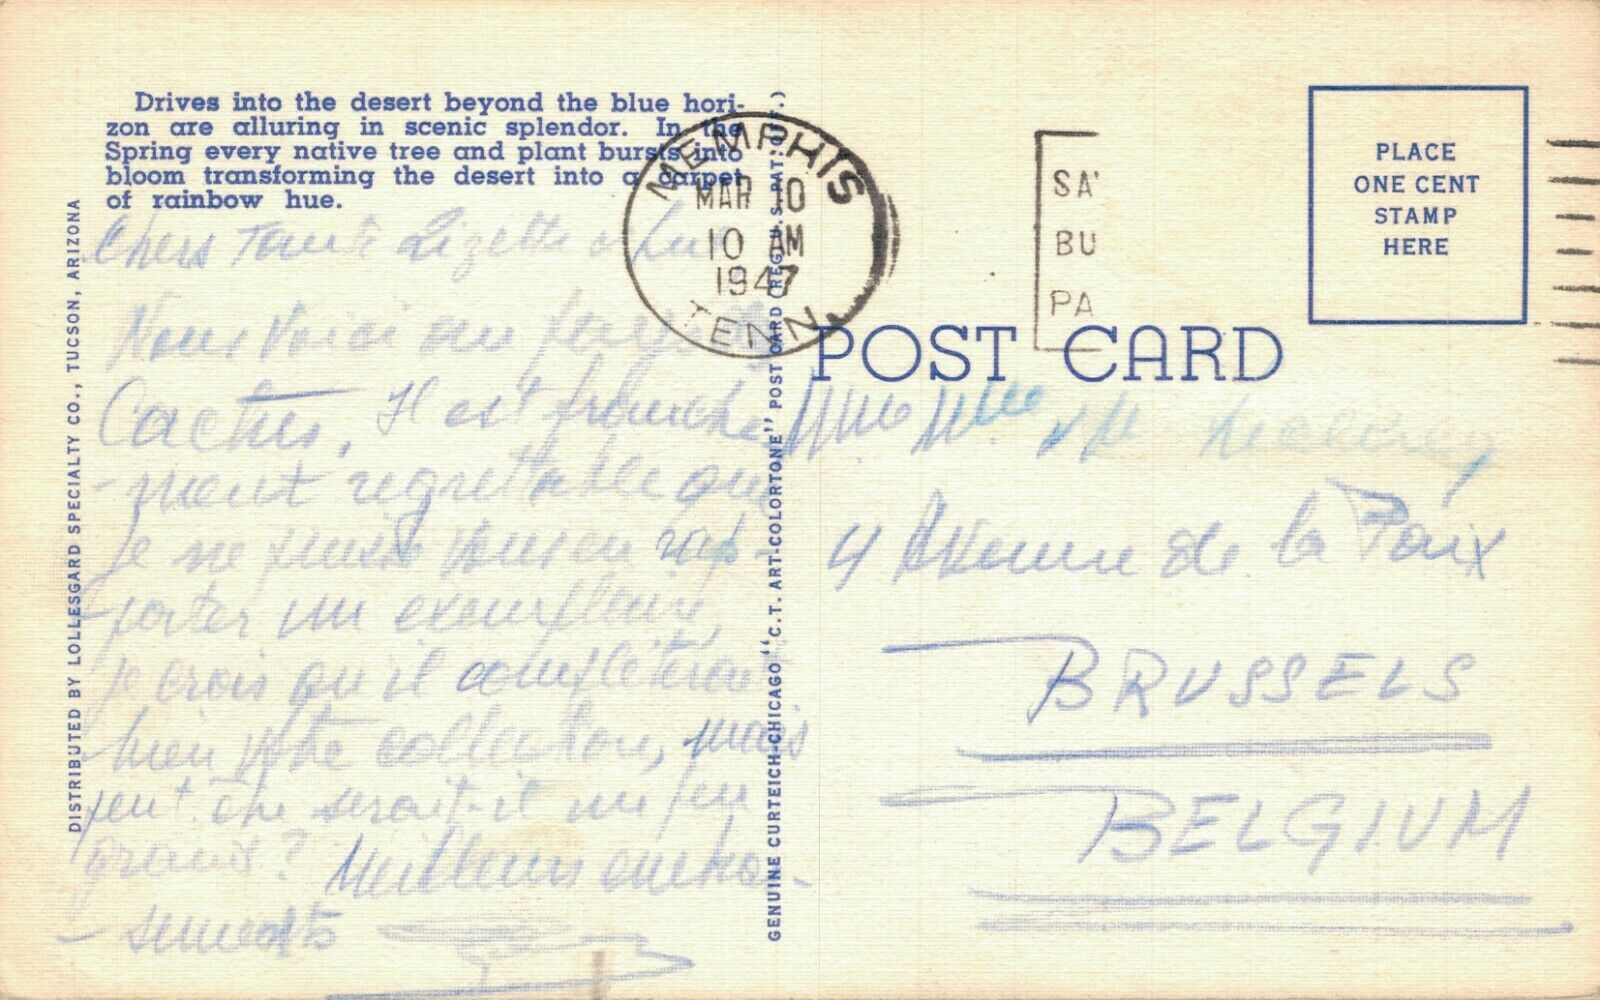 Drives into the desert beyond the blue hori-
zon are alluring in scenic splendor. In the
Spring every native tree and plant bursts into
bloom transforming the desert into a carpet
of rainbow hue.
MEMPHIS
MAR 10
10 AM
1947
TENN.
SA
BU
PA
PLACE
ONE CENT
STAMP
HERE
POST CARD
DISTRIBUTED BY LOLLESGARD SPECIALTY CO., TUCSON, ARIZONA
GENUINE CURTEICH-CHICAGO "C.T. ART-COLORTONE" POST CARD (REG. U.S. PAT. OFF.)
Chers Tante Lizette
Nous voici au pays
Cactus, Il est franche
-ment regrettable que
je ne puisse vous en rap
-porter un exemplaire,
je crois qu'il complèterait
bien votre collection, mais
peut être serait-il un peu
grand? Meilleurs
4 Avenue de la Paix
BRUSSELS
BELGIUM